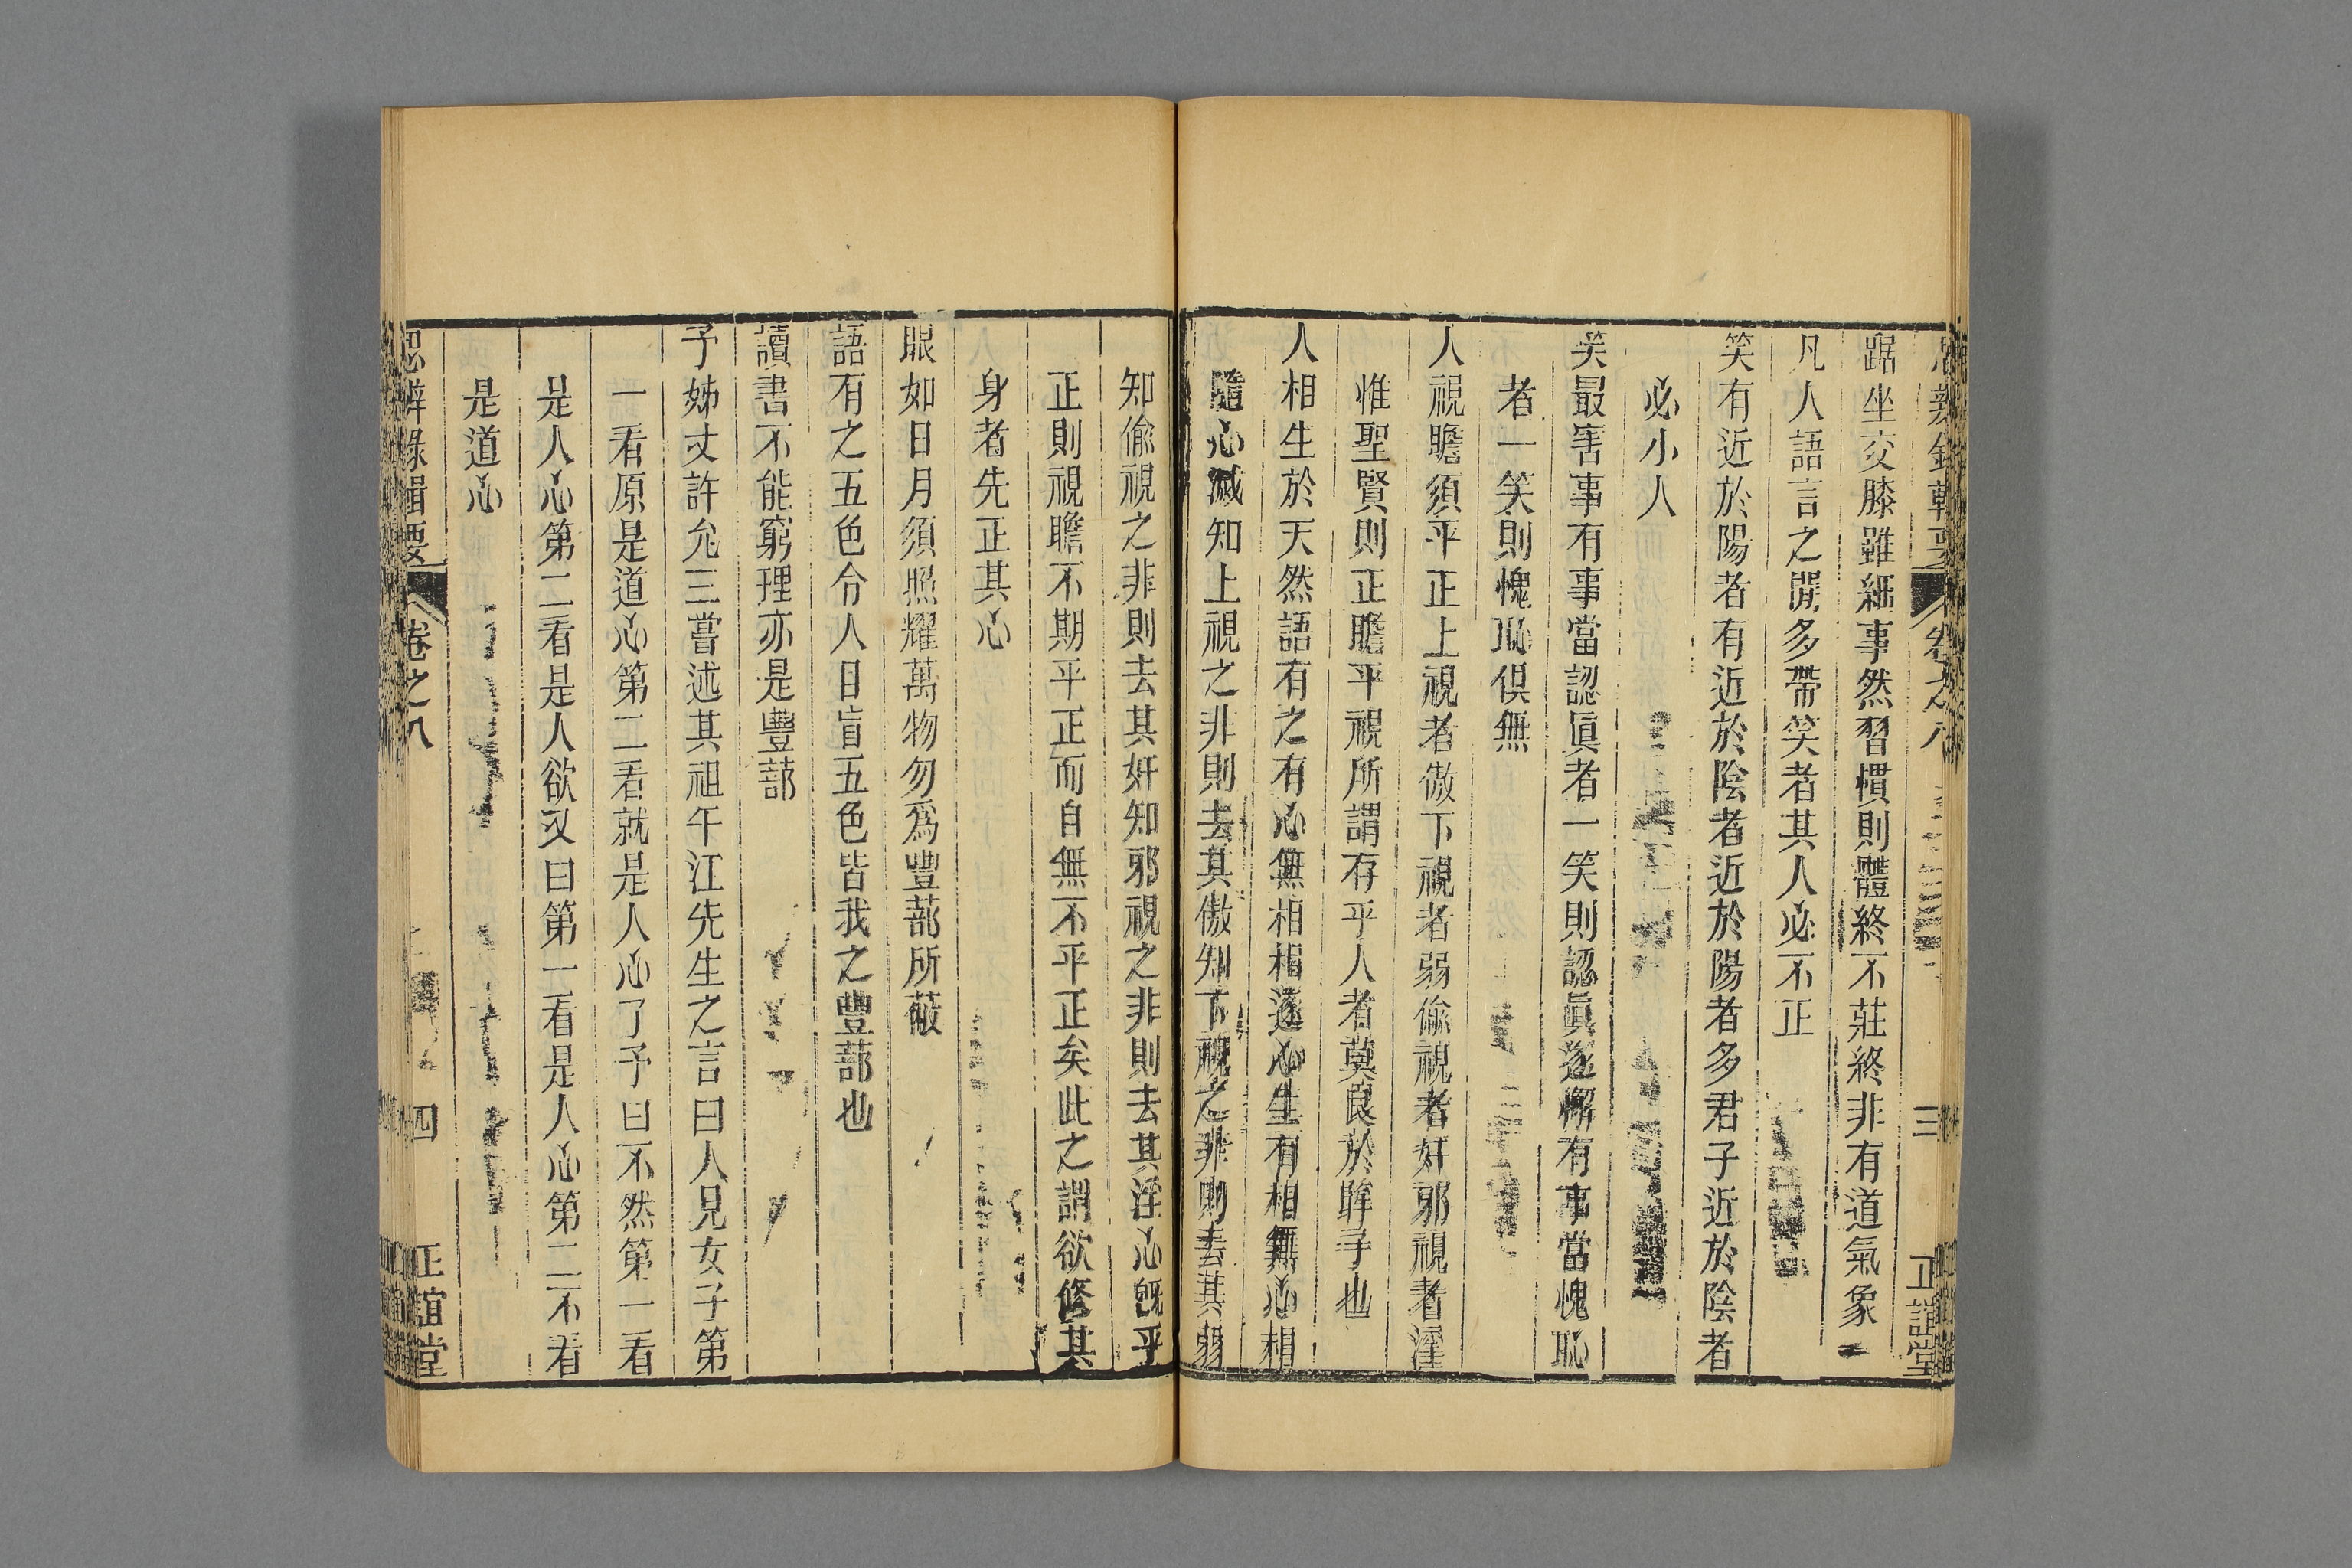 踞坐交膝雖細事然習慣則體終不莊終非有道氣象
凡人語言之閒多帶笑者其人必不正
笑有近於陽者有近於陰者近於陽者多君子近於陰者
必小人
笑最害事有事當認眞者一笑則認眞遂懈有事當愧恥
者一笑則愧恥俱無
人視瞻須平正上視者傲下視者弱偸視者奸邪視者淫
惟聖賢則正瞻平視所謂存乎人者莫良於眸子也
人相生於天然語有之有心無相相逐心生有相無心相
隨心滅知上視之非則去其傲知下視之非則去其弱
知偸視之非則去其奸知邪視之非則去其淫心旣平
正則視瞻不期平正而自無不平正矣此之謂欲修其
身者先正其心
眼如日月須照耀萬物勿爲豐蔀所蔽
語有之五色令人目盲五色皆我之豐蔀也
讀書不能窮理亦是豐蔀
予姊丈許允三嘗述其祖午江先生之言曰人見女子第
一看原是道心第二看就是人心了予曰不然第一看
是人心第二看是人欲又曰第一看是人心第二不看
是道心
思辨錄輯要
卷之八
四
正誼堂